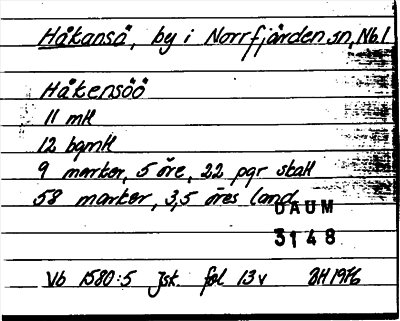 Håkansö, by i Norrfjärden sn, Nb l
Håkensöö
11 mtl
12 bgmtl
9 marker, 5 öre, 22 pgr skatt
58 marker, 3,5 öres land
DAUM
3148
Vb 1580:5 Jsk. fol 13v BH 1976